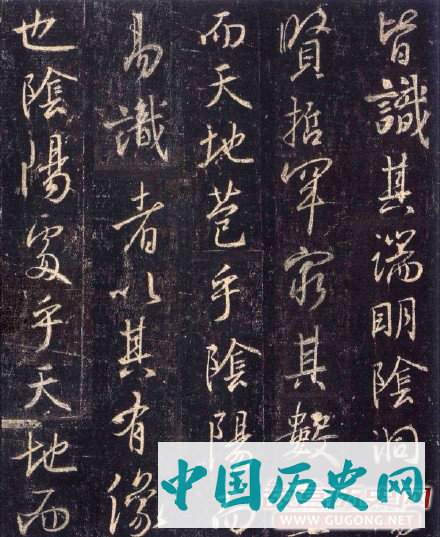 皆識其端明陰洞陽
賢哲罕窮其數然
而天地苞乎陰陽而
易識者以其有像
也陰陽處乎天地而
中国历史网
WWW.GUGONG.NET